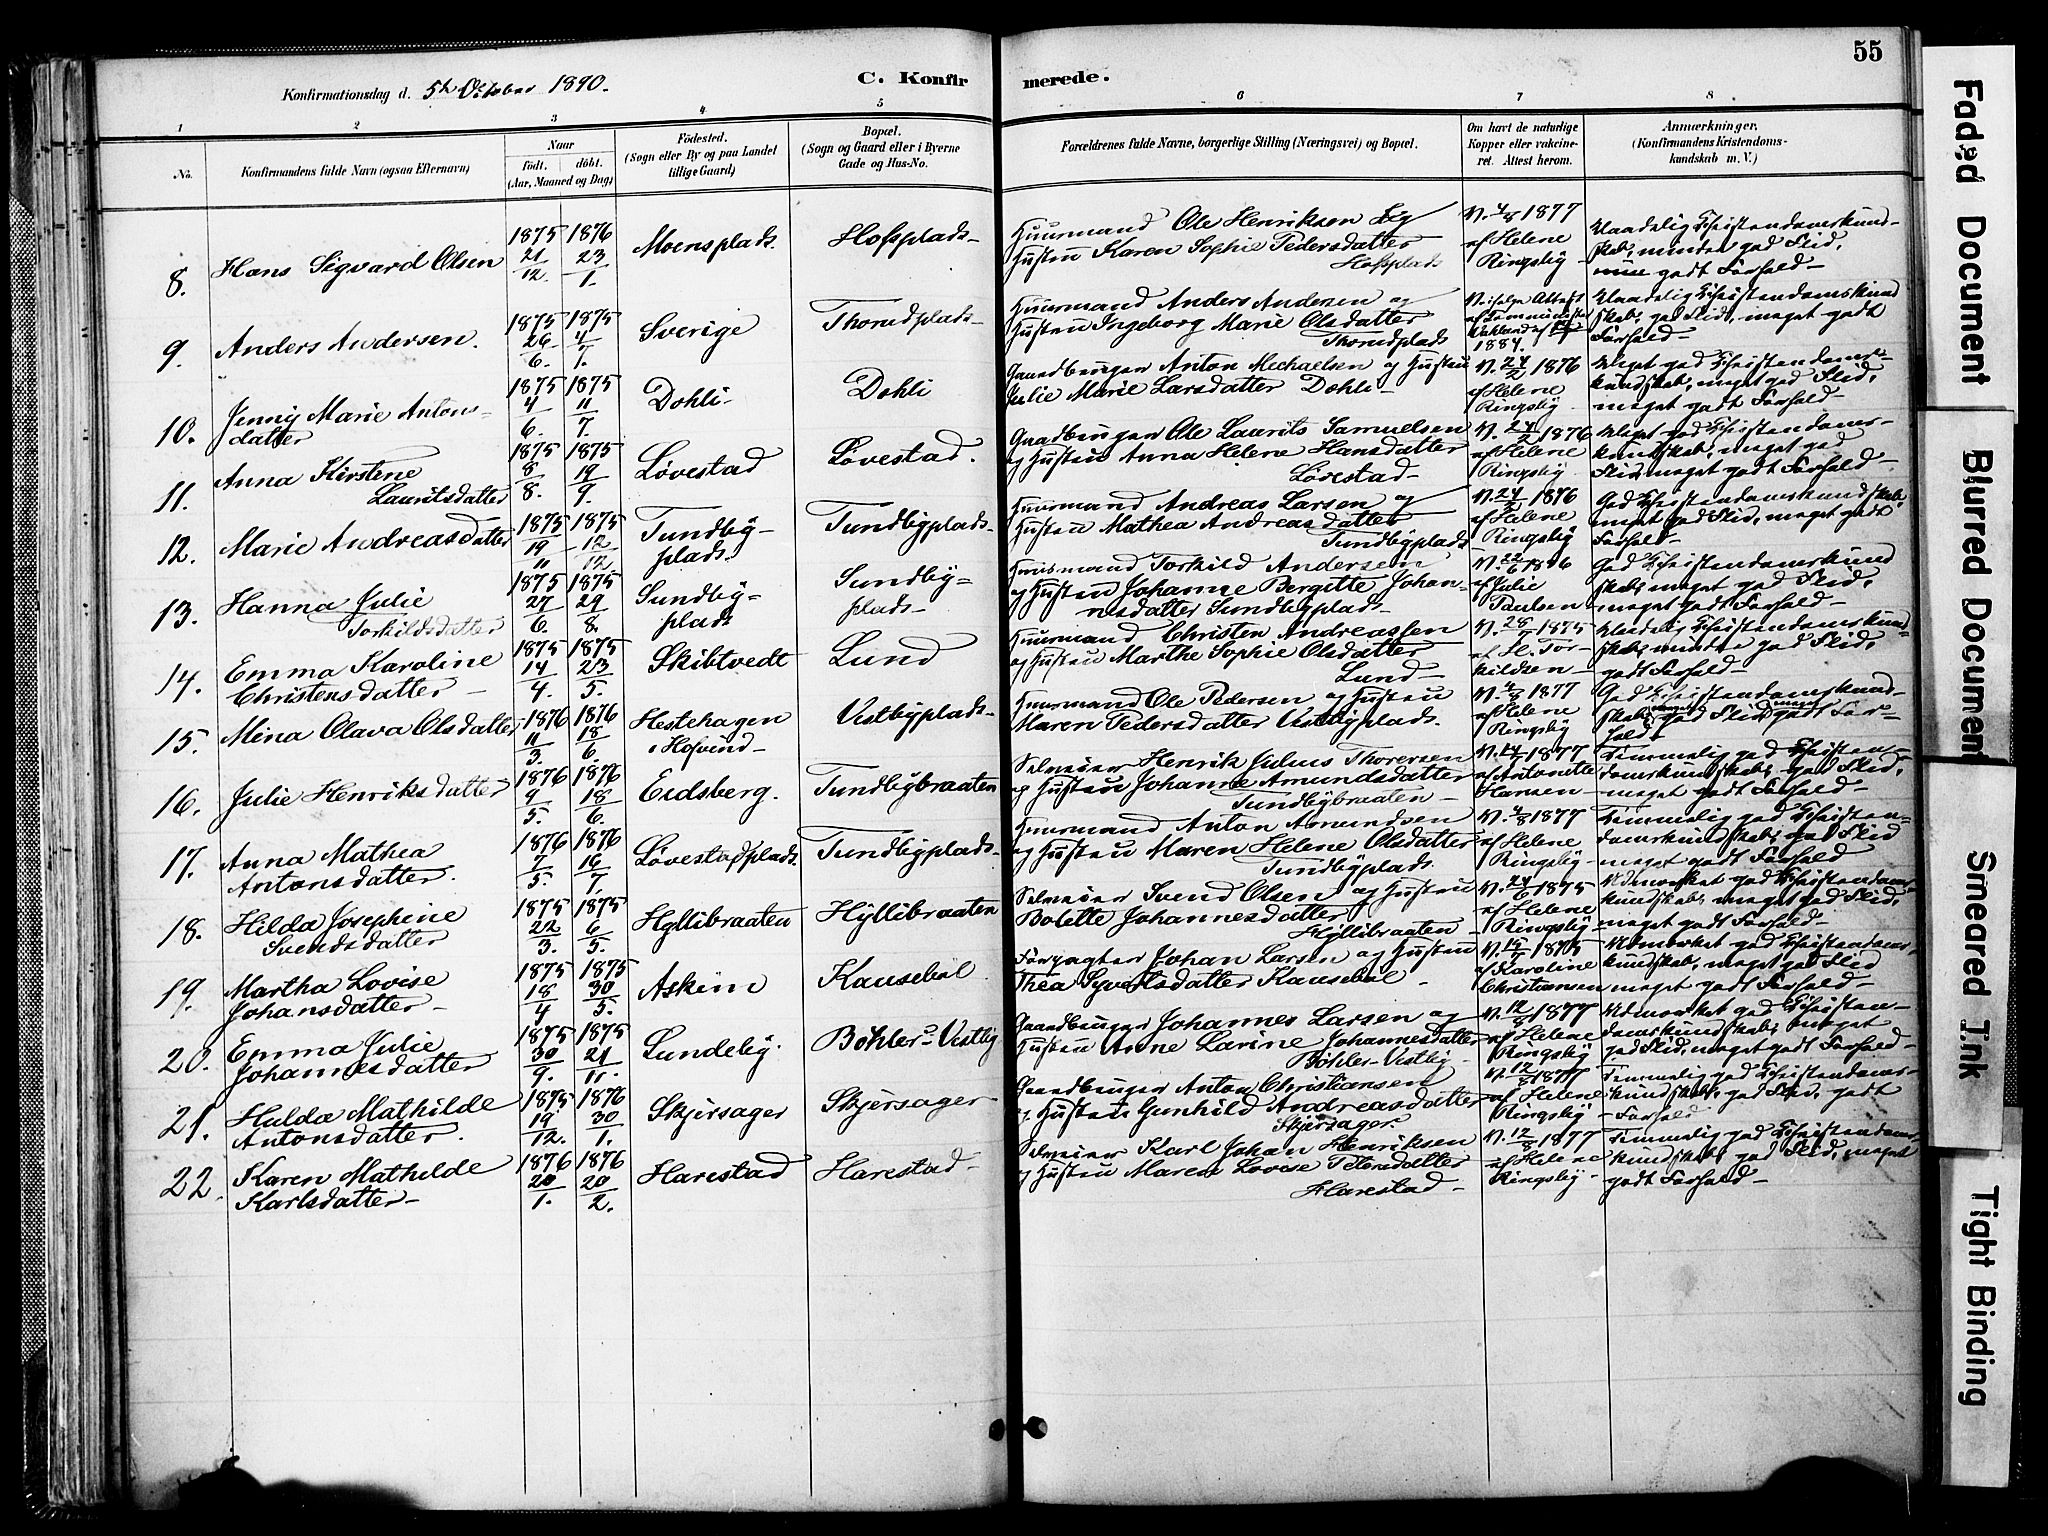 55
Konfirmationsdag d. 5te October 1890.
C. Konfirmerede.
1 2 3 4 5 6 7 8
No.
Konfirmandens fulde Navn (ogsaa Efternavn)
Naar
födt. döbt.
(Aar, Maaned og Dag)
Födested.
(Sogn eller By og paa Landet
tillige Gaard)
Bopæl.
(Sogn og Gaard eller i Byerne
Gade og Hus-No.
Forældrenes fulde Navne, borgerlige Stilling (Næringsvei) og Bopæl.
Om havt de naturlige
Kopper eller vakcine-
ret. Attest herom.
Anmærkninger.
(Konfirmandens Kristendoms-
kundskab m. V.)
8. Hans Sigvard Olsen 1875 21/12. 1876 23/1. Moensplads Hofsplads-
Huusmand Ole Henriksen og
Hustru Karen Sophie Pedersdatter
Hofsplads
V. 4/8 1877
af Helene
Ringsby-
Maadelig Christendomskund-
skab, mindre god Flid,
godt Forhold-
9. Anders Andersen. 1875 26/6. 1875 4/7. Sverige Thorudplads-
Huusmand Anders Andersen og
Hustru Ingeborg Marie Olsdatter
Thorudplads
1884.
Maadelig Christendomskund
skab, god Flid, meget godt
Forhold-
10. Jenny Marie Antons-
datter 1875 4/6. 1875 11/7. Dohli- Dohli
Gaardbruger Anton Mechaelsen og Hustru
Julie Marie Larsdatter Dohli-
V. 24/2 1876
af Helene
Ringsby-
Meget god Christendoms-
kundskab, meget god Flid,
meget godt Forhold-
11. Anna Kirstene
Lauritsdatter 1875 8/8. 1875 19/9. Løvestad Løvestad.
Gaardbruger Ole Laurits Samuelsen
og Hustru Anna Helene Hansdatter
Løvestad-
V. 24/2 1876
af Helene
Ringsby-
Meget god Christendoms-
kundskab, meget god
Flid, meget godt Forhold-
12. Marie Andreasdatter 1875 19/11 1875 12/12 Tundby-
plads. Tundbyplads-
Huusmand Andreas Larsen og
Hustru Mathea Andreasdatter
Tundbyplads
V. 24/2 1876
af Helene
Ringsby
God Christendomskundskab,
meget god Flid, meget godt
Forhold-
13. Hanna Julie
Torkildsdatter 1875 27/6. 1875 29/8. Sundby-
plads Sundby-
plads-
Huusmand Torkild Andersen
og Hustru Johanne Bergitte Johan-
nesdatter Sundbyplads-
af Julie
Paulsen-
God Christendomskund
skab, meget god Flid,
meget godt Forhold-
14. Emma Karoline
Christensdatter- 1875 14/4. 1875 23/5. Skibtvedt Lund
Huusmand Christen Andreassen
og Hustru Marthe Sophie Olsdatter
Lund-
V. 28/7 1875
af H. Tor-
kildsen-
Maadelig Christendomskund-
skab, mindre god Flid,
godt Forhold-
15. Mina Olava Olsdatter 1876 11/3. 1876 18/6. Hestehagen
i Hofvind- Vestbyplads-
Huusmand Ole Pedersen og Hustru
Maren Pedersdatter Vestbyplads.
V. 4/8 1877
af Helene
Ringsby
God Christendomskund-
skab, meget god Flid, meget godt For-
hold.
16. Julie Henriksdatter 1876 9/5. 1876 18/6. Eidsberg. Tundbybraaten
Selveier Henrik Julius Thoresen
og Hustru Johanne Amundsdatter
Tundbybraaten-
V. 14/7 1877
af Antonette
Hansen-
Temmelig god Christen-
domskundskab, god Flid,
meget godt Forhold-
17. Anna Mathea
Antonsdatter. 1876 7/5. 1876 16/7. Løvestadplads. Tundbyplads-
Huusmand Anton Amundsen
og Hustru Maren Helene Olsdatter
Tundbyplads
V. 4/8 1877
af Helene
Ringsby-
Temmelig god Christen-
domskundskab, god Flid
meget godt Forhold
18. Hilda Josephine
Svendsdatter 1875 22/3. 1875 6/5. Hyllibraaten Hyllibraaten
Selveier Svend Olsen og Hustru
Bolette Johannesdatter
Hyllibraaten-
V. 24/6 1875
af Helene
Ringsby-
Udmærket god Christendoms-
kundskab, meget god Flid,
meget godt Forhold-
19. Martha Lovise
Johansdatter- 1875 18/4 1875 30/5. Askim Kausebøl
Forpagter Johan Larsen og Hustru
Thea Syvertsdatter Kausebøl-
af Karoline
Christiansen
Udmærket god Christendoms-
kundskab, meget god Flid
meget godt Forhold-
20. Emma Julie
Johannesdatter 1875 30/9. 1875 21/11. Lundeby. Bøhler-Vestby
Gaardbruger Johannes Larsen og
Hustru Anne Larine Johannesdatter
Bøhler-Vestby-
V. 12/8 1877
af Helene
Ringsby
Udmærket god Christen-
domskundskab, meget
god Flid, meget godt Forhold-
21. Hulda Mathilde
Antonsdatter. 1875 19/12. 1876 30/1. Skjersager Skjersager
Gaardbruger Anton Christiansen
og Hustru Gunhild Andreasdatter
Skjersager.
V. 12/8 1877
af Helene
Ringsby-
Temmelig god Christendoms-
kundskab, god Flid, godt
Forhold
22. Karen Mathilde
Karlsdatter- 1876 20/1. 1876 20/2. Harestad Harestad-
Selveier Karl Johan Henriksen
og Hustru Maren Lovise Petersdatter
Harestad-
V. 12/8 1877
af Helene
Ringsby-
Temmelig god Christendoms-
kundskab, god Flid, meget
godt Forhold-
Faded Document
Blurred Document
Smeared Ink
Tight Binding